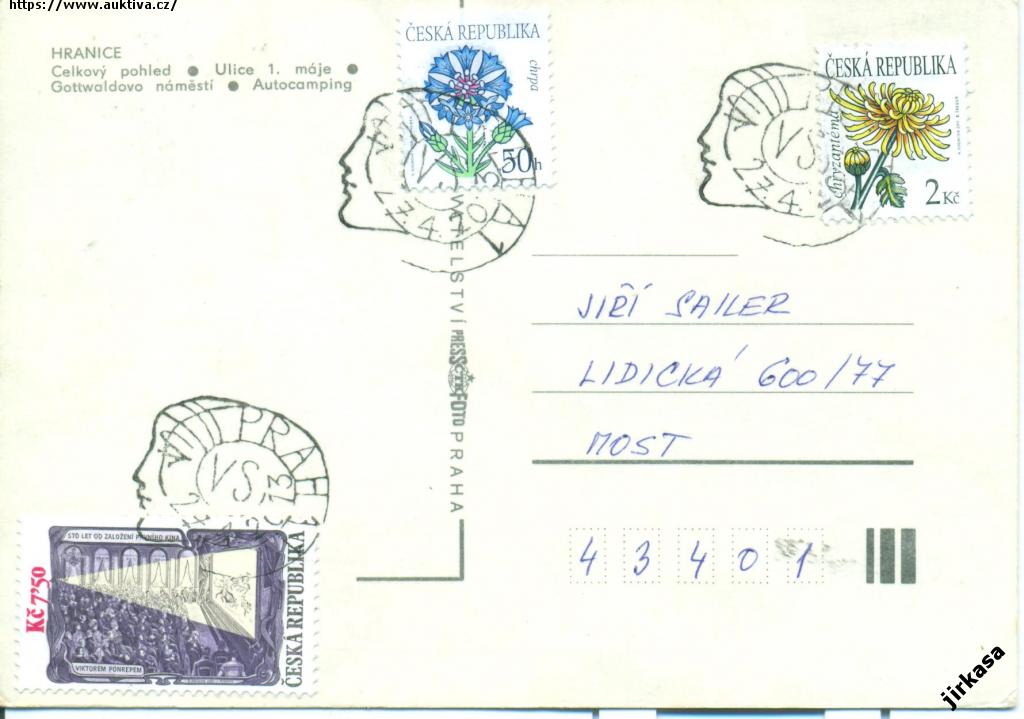 https://www.auktiva.cz/
HRANICE
Celkový pohled ● Ulice 1. máje ●
Gottwaldovo náměstí ● Autocamping
ČESKÁ REPUBLIKA
chrpa
50h
ČESKÁ REPUBLIKA
chryzantéma
2 Kč
VS
27.4.
VS
27.4.
PRESSFOTO PRAHA
JIŘÍ SAILER
LIDICKÁ 600/77
MOST
43401
PRAHA
VS
STO LET OD ZALOŽENÍ PRVNÍHO KINA
Kč 7'50
ČESKÁ REPUBLIKA
VIKTOREM PONREPEM
jirkasa